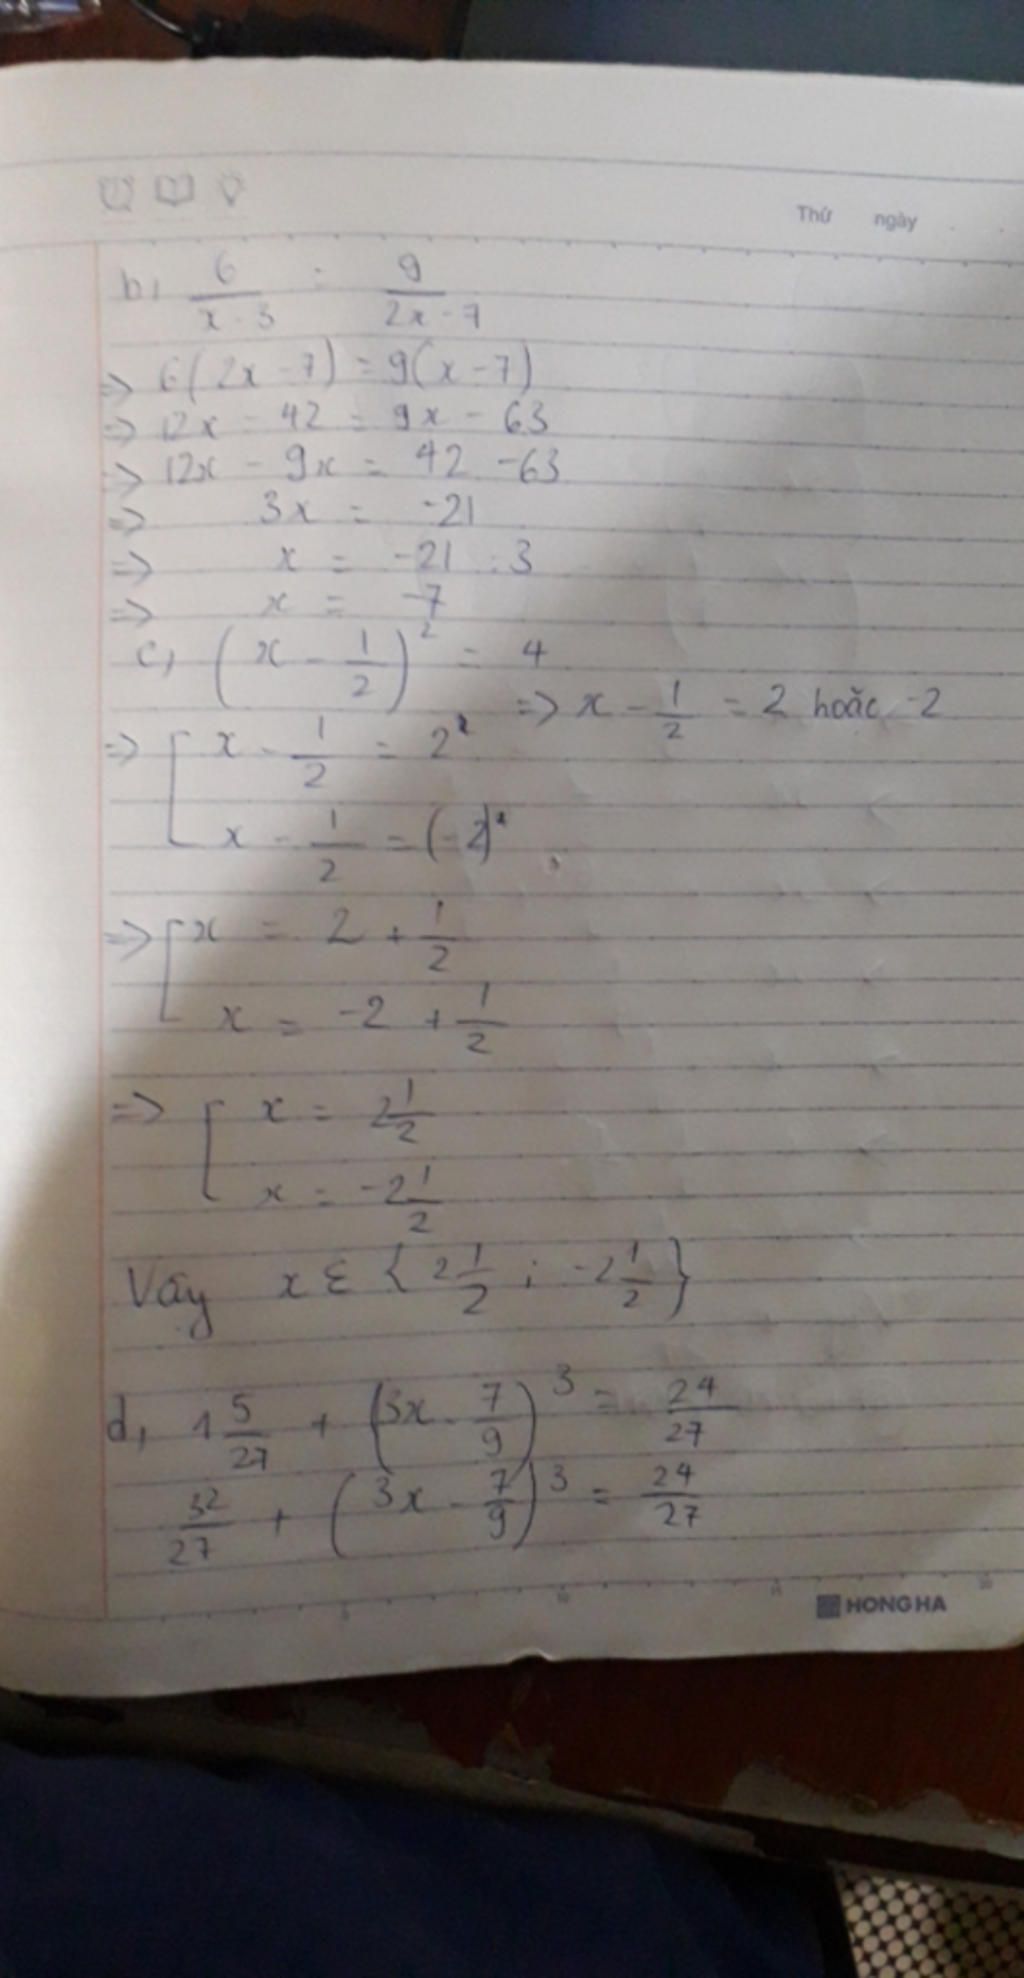 Thứ ngày
b, 6/(x - 3) = 9/(2x - 7)
=> 6(2x - 7) = 9(x - 7)
=> 12x - 42 = 9x - 63
=> 12x - 9x = 42 - 63
=> 3x = -21
=> x = -21 : 3
=> x = -7
c, (x - 1/2)² = 4
=> x - 1/2 = 2 hoặc -2
=> [ x - 1/2 = 2²
x - 1/2 = (-2)²
=> [ x = 2 + 1/2
x = -2 + 1/2
=> [ x = 2 1/2
x = -2 1/2
Vậy x ∈ { 2 1/2 ; -2 1/2 }
d, 1 5/27 + (3x - 7/9)³ = 24/27
32/27 + (3x - 7/9)³ = 24/27
HONG HA